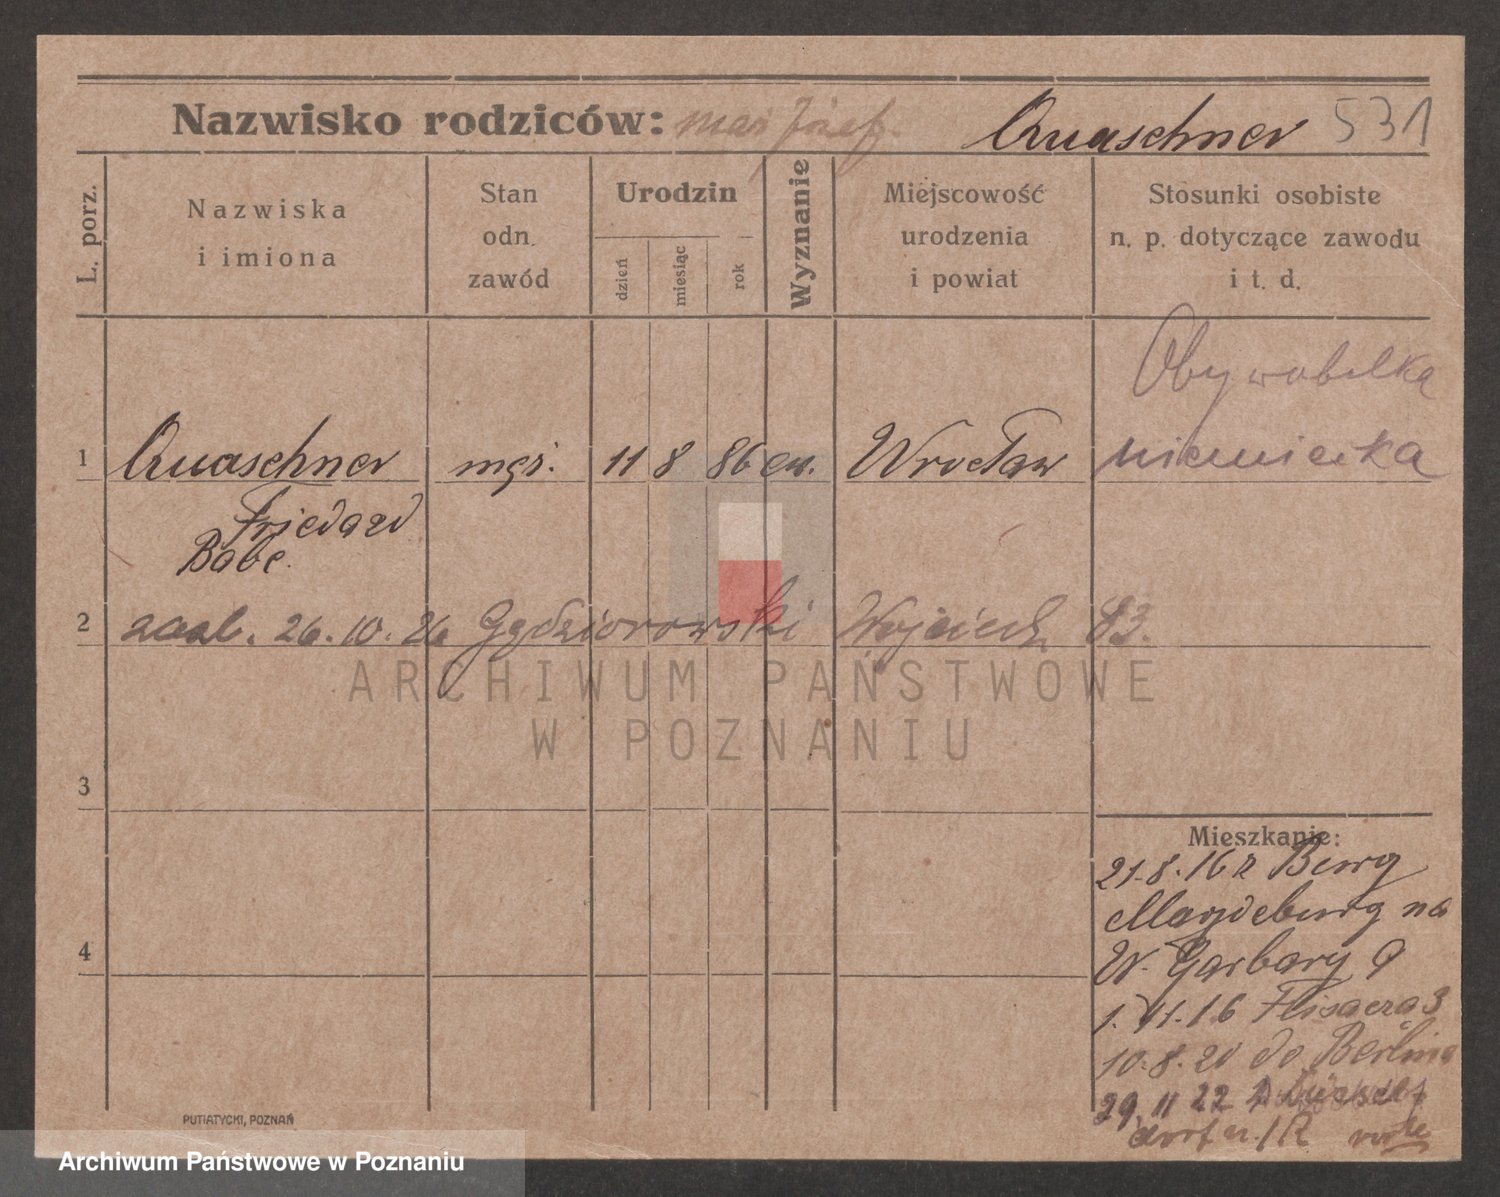 Nazwisko rodziców: Józef. Quaschner 531
L. porz.
Nazwiska
i imiona
Stan
odn.
zawód
Urodzin
dzień
miesiąc
rok
Wyznanie
Miejscowość
urodzenia
i powiat
Stosunki osobiste
n. p. dotyczące zawodu
i t. d.
Obywatelka
1 Quaschner 11 8 86 ew. Wrocław niemiecka
Babe.
2 26.10.26 Gądziorowski Wojciech 83.
ARCHIWUM PAŃSTWOWE
W POZNANIU
3
Mieszkanie:
21.8.16 z Burg
Magdeburg na
4 W. Garbary 9
1.11.16 3
10.8.20 do Berlina
29 11 22 z Düssel
dorf
PUTIATYCKI, POZNAŃ
Archiwum Państwowe w Poznaniu